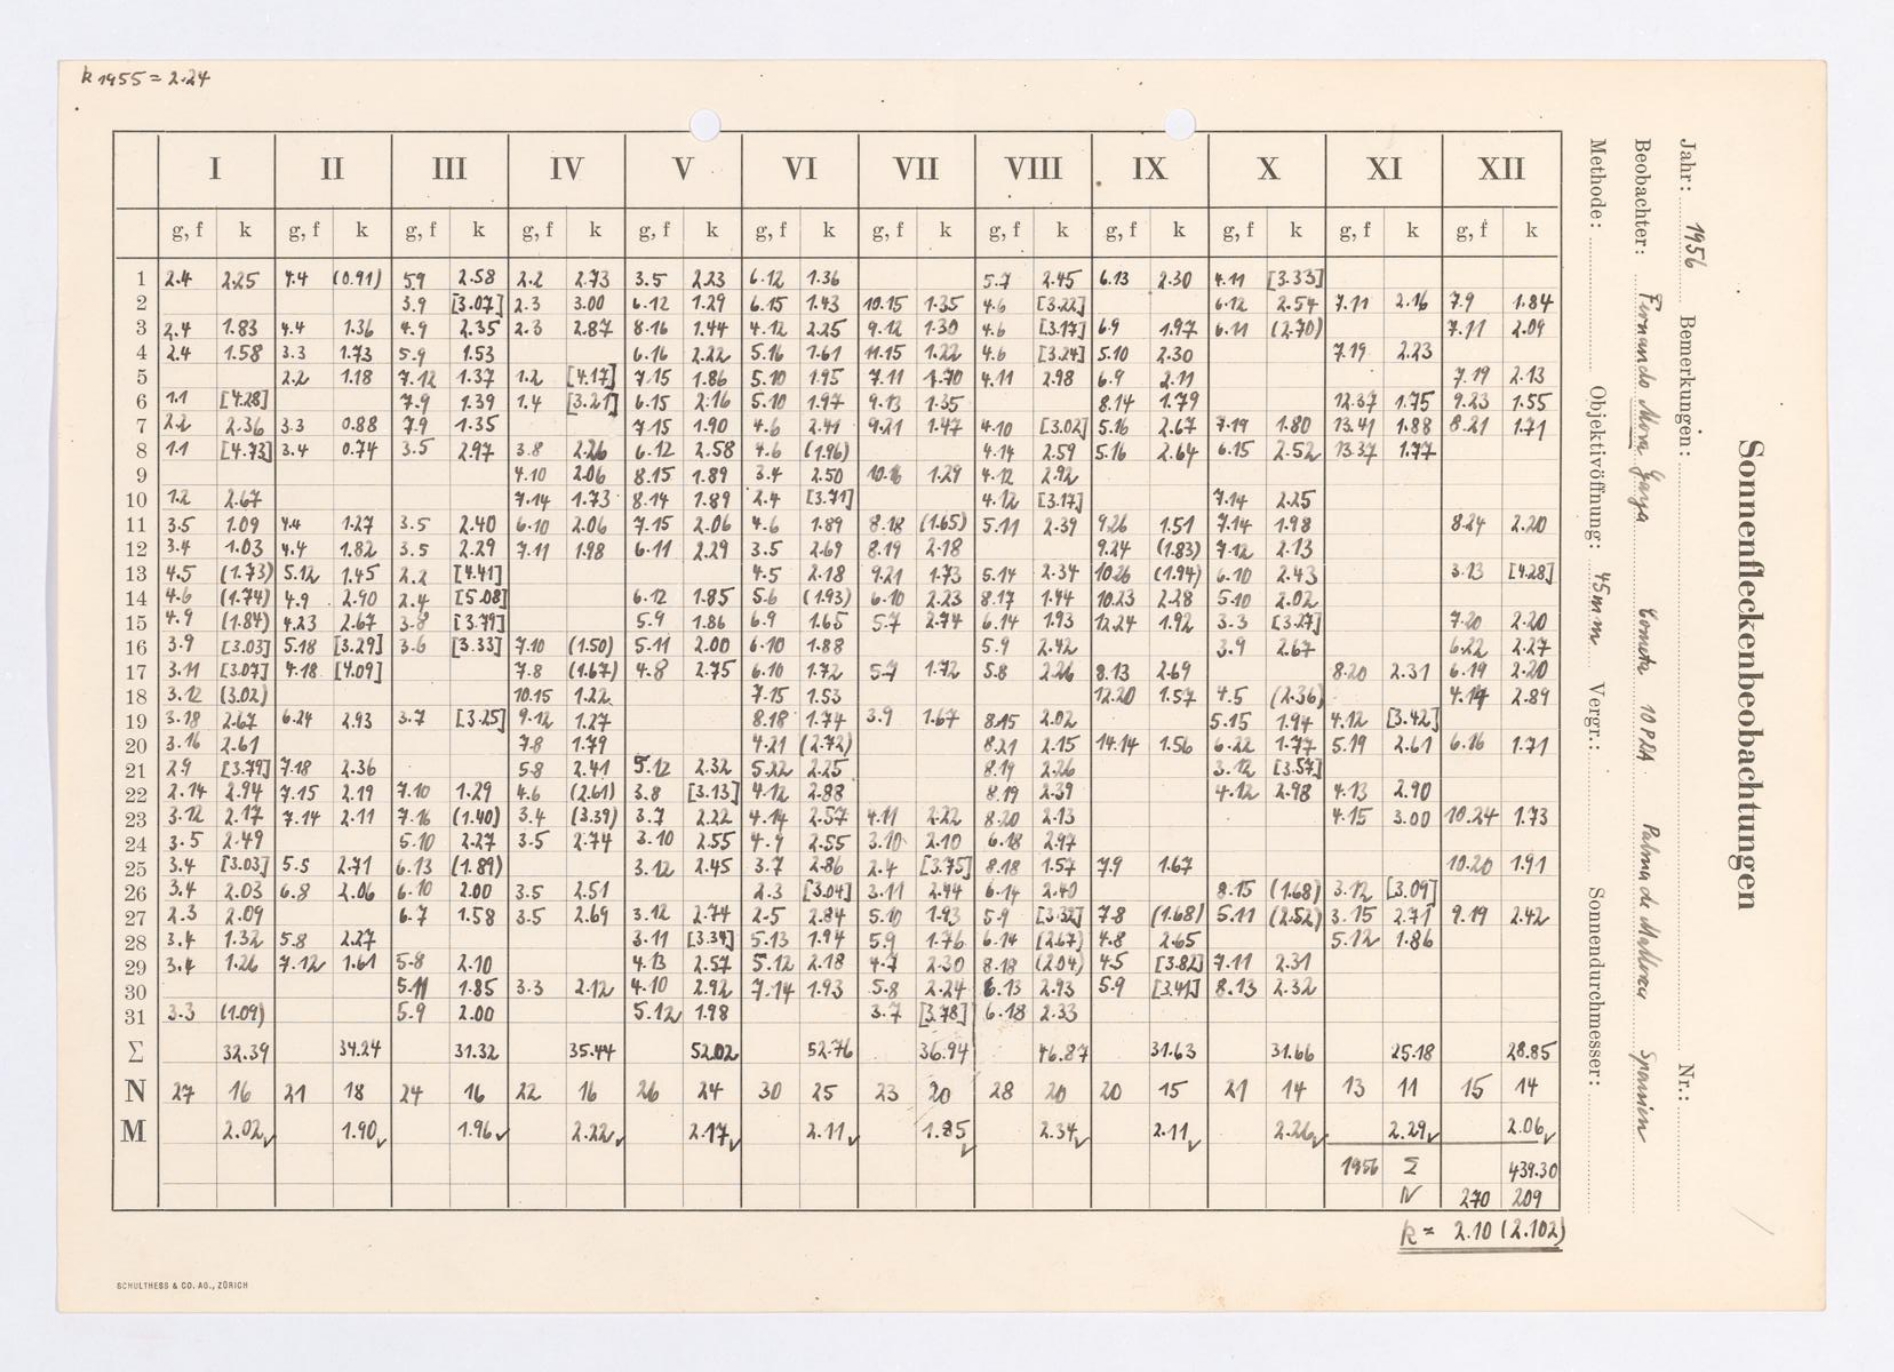 k 1955 = 2.24
I II III IV V VI VII VIII IX X XI XII
g, f k g, f k g, f k g, f k g, f k g, f k g, f k g, f k g, f k g, f k g, f k g, f k
1 2.4 2.25 4.4 (0.91) 5.9 2.58 2.2 2.73 3.5 2.23 6.12 1.36 5.7 2.45 6.13 2.30 4.11 [3.33]
2 3.9 [3.07] 2.3 3.00 6.12 1.29 6.15 1.43 10.15 1.35 4.6 [3.22] 6.12 2.54 7.11 2.16 7.9 1.84
3 2.4 1.83 4.4 1.36 4.9 2.35 2.3 2.87 8.16 1.44 4.12 2.25 9.12 1.30 4.6 [3.17] 6.9 1.97 6.11 (2.70) 7.11 2.09
4 2.4 1.58 3.3 1.73 5.9 1.53 6.16 2.22 5.16 1.61 11.15 1.22 4.6 [3.24] 5.10 2.30 7.19 2.23
5 2.2 1.18 7.12 1.37 1.2 [4.17] 7.15 1.86 5.10 1.95 7.11 1.70 4.11 2.98 6.9 2.11 7.19 2.13
6 1.1 [4.28] 7.9 1.39 1.4 [3.21] 6.15 2.16 5.10 1.97 9.13 1.35 8.14 1.79 12.37 1.75 9.23 1.55
7 2.2 2.36 3.3 0.88 7.9 1.35 7.15 1.90 4.6 2.41 9.21 1.47 4.10 [3.02] 5.16 2.67 7.19 1.80 13.41 1.88 8.21 1.71
8 1.1 [4.73] 3.4 0.74 3.5 2.97 3.8 2.26 6.12 2.58 4.6 (1.96) 4.14 2.59 5.16 2.64 6.15 2.52 13.37 1.77
9 4.10 2.06 8.15 1.89 3.4 2.50 10.16 1.29 4.12 2.92
10 1.2 2.67 7.14 1.73 8.14 1.89 2.4 [3.71] 4.12 [3.17] 7.14 2.25
11 3.5 1.09 4.4 1.27 3.5 2.40 6.10 2.06 7.15 2.06 4.6 1.89 8.18 (1.65) 5.11 2.39 9.26 1.51 7.14 1.98 8.24 2.20
12 3.4 1.03 4.4 1.82 3.5 2.29 7.11 1.98 6.11 2.29 3.5 2.69 8.19 2.18 9.24 (1.83) 7.12 2.13
13 4.5 (1.73) 5.12 1.45 2.2 [4.41] 4.5 2.18 9.21 1.73 5.14 2.34 10.26 (1.94) 6.10 2.43 3.13 [4.28]
14 4.6 (1.74) 4.9 2.90 2.4 [5.08] 6.12 1.85 5.6 (1.93) 6.10 2.23 8.17 1.44 10.23 2.28 5.10 2.02
15 4.9 (1.84) 4.23 2.67 3.8 [3.79] 5.9 1.86 6.9 1.65 5.7 2.74 6.14 1.93 12.24 1.92 3.3 [3.27] 7.20 2.20
16 3.9 [3.03] 5.18 [3.29] 3.6 [3.33] 7.10 (1.50) 5.11 2.00 6.10 1.88 5.9 2.42 3.9 2.67 6.22 2.27
17 3.11 [3.07] 4.18 [4.09] 7.8 (1.67) 4.8 2.75 6.10 1.72 5.7 1.72 5.8 2.26 8.13 2.69 8.20 2.31 6.19 2.20
18 3.12 (3.02) 10.15 1.22 7.15 1.53 12.20 1.57 4.5 (2.36) 4.14 2.89
19 3.18 2.67 6.24 2.93 3.7 [3.25] 9.12 1.27 8.18 1.74 3.9 1.67 8.15 2.02 5.15 1.94 4.12 [3.42]
20 3.16 2.61 7.8 1.79 4.21 (2.72) 8.21 2.15 14.14 1.56 6.22 1.77 5.19 2.61 6.16 1.71
21 2.9 [3.79] 7.18 2.36 5.8 2.41 5.12 2.32 5.22 2.25 8.19 2.26 3.12 [3.57]
22 2.14 2.94 7.15 2.19 7.10 1.29 4.6 (2.61) 3.8 [3.13] 4.12 2.88 8.19 2.39 4.12 2.98 4.13 2.90
23 3.12 2.17 7.14 2.11 7.16 (1.40) 3.4 (3.39) 3.7 2.22 4.14 2.57 4.11 2.22 8.20 2.13 4.15 3.00 10.24 1.73
24 3.5 2.49 5.10 2.27 3.5 2.74 3.10 2.55 4.9 2.55 3.10 2.10 6.18 2.97
25 3.4 [3.03] 5.5 2.71 6.13 (1.89) 3.12 2.45 3.7 2.86 2.4 [3.75] 8.18 1.57 7.9 1.67 10.20 1.91
26 3.4 2.03 6.8 2.06 6.10 2.00 3.5 2.51 2.3 [3.04] 3.11 2.44 6.14 2.40 8.15 (1.68) 3.12 [3.09]
27 2.3 2.09 6.7 1.58 3.5 2.69 3.12 2.74 2.5 2.84 5.10 1.93 5.9 [3.32] 7.8 (1.68) 5.11 (2.52) 3.15 2.71 9.19 2.42
28 3.4 1.32 5.8 2.27 3.11 [3.34] 5.13 1.94 5.9 1.76 6.14 (2.67) 4.8 2.65 5.12 1.86
29 3.4 1.26 7.12 1.61 5.8 2.10 4.13 2.57 5.12 2.18 4.7 2.30 8.18 (2.04) 4.5 [3.82] 7.11 2.31
30 5.11 1.85 3.3 2.12 4.10 2.92 7.14 1.93 5.8 2.24 6.13 2.93 5.9 [3.41] 8.13 2.32
31 3.3 (1.09) 5.9 2.00 5.12 1.98 3.7 [3.78] 6.18 2.33
Σ 32.39 34.24 31.32 35.44 52.02 52.76 36.94 46.87 31.63 31.66 25.18 28.85
N 27 16 21 18 24 16 22 16 26 24 30 25 23 20 28 20 20 15 21 14 13 11 15 14
M 2.02✓ 1.90✓ 1.96✓ 2.22✓ 2.17✓ 2.11✓ 1.85✓ 2.34✓ 2.11✓ 2.26✓ 2.29✓ 2.06✓
1956 Σ 439.30
N 270 209
k = 2.10 (2.102)
SCHULTHESS & CO. AG., ZÜRICH
Sonnenfleckenbeobachtungen
Jahr: 1956 Bemerkungen: Nr.:
Beobachter: Fernando Mora Comita 10 Palma de Mallorca Spanien
Methode: Objektivöffnung: 45mm Vergr.: Sonnendurchmesser: